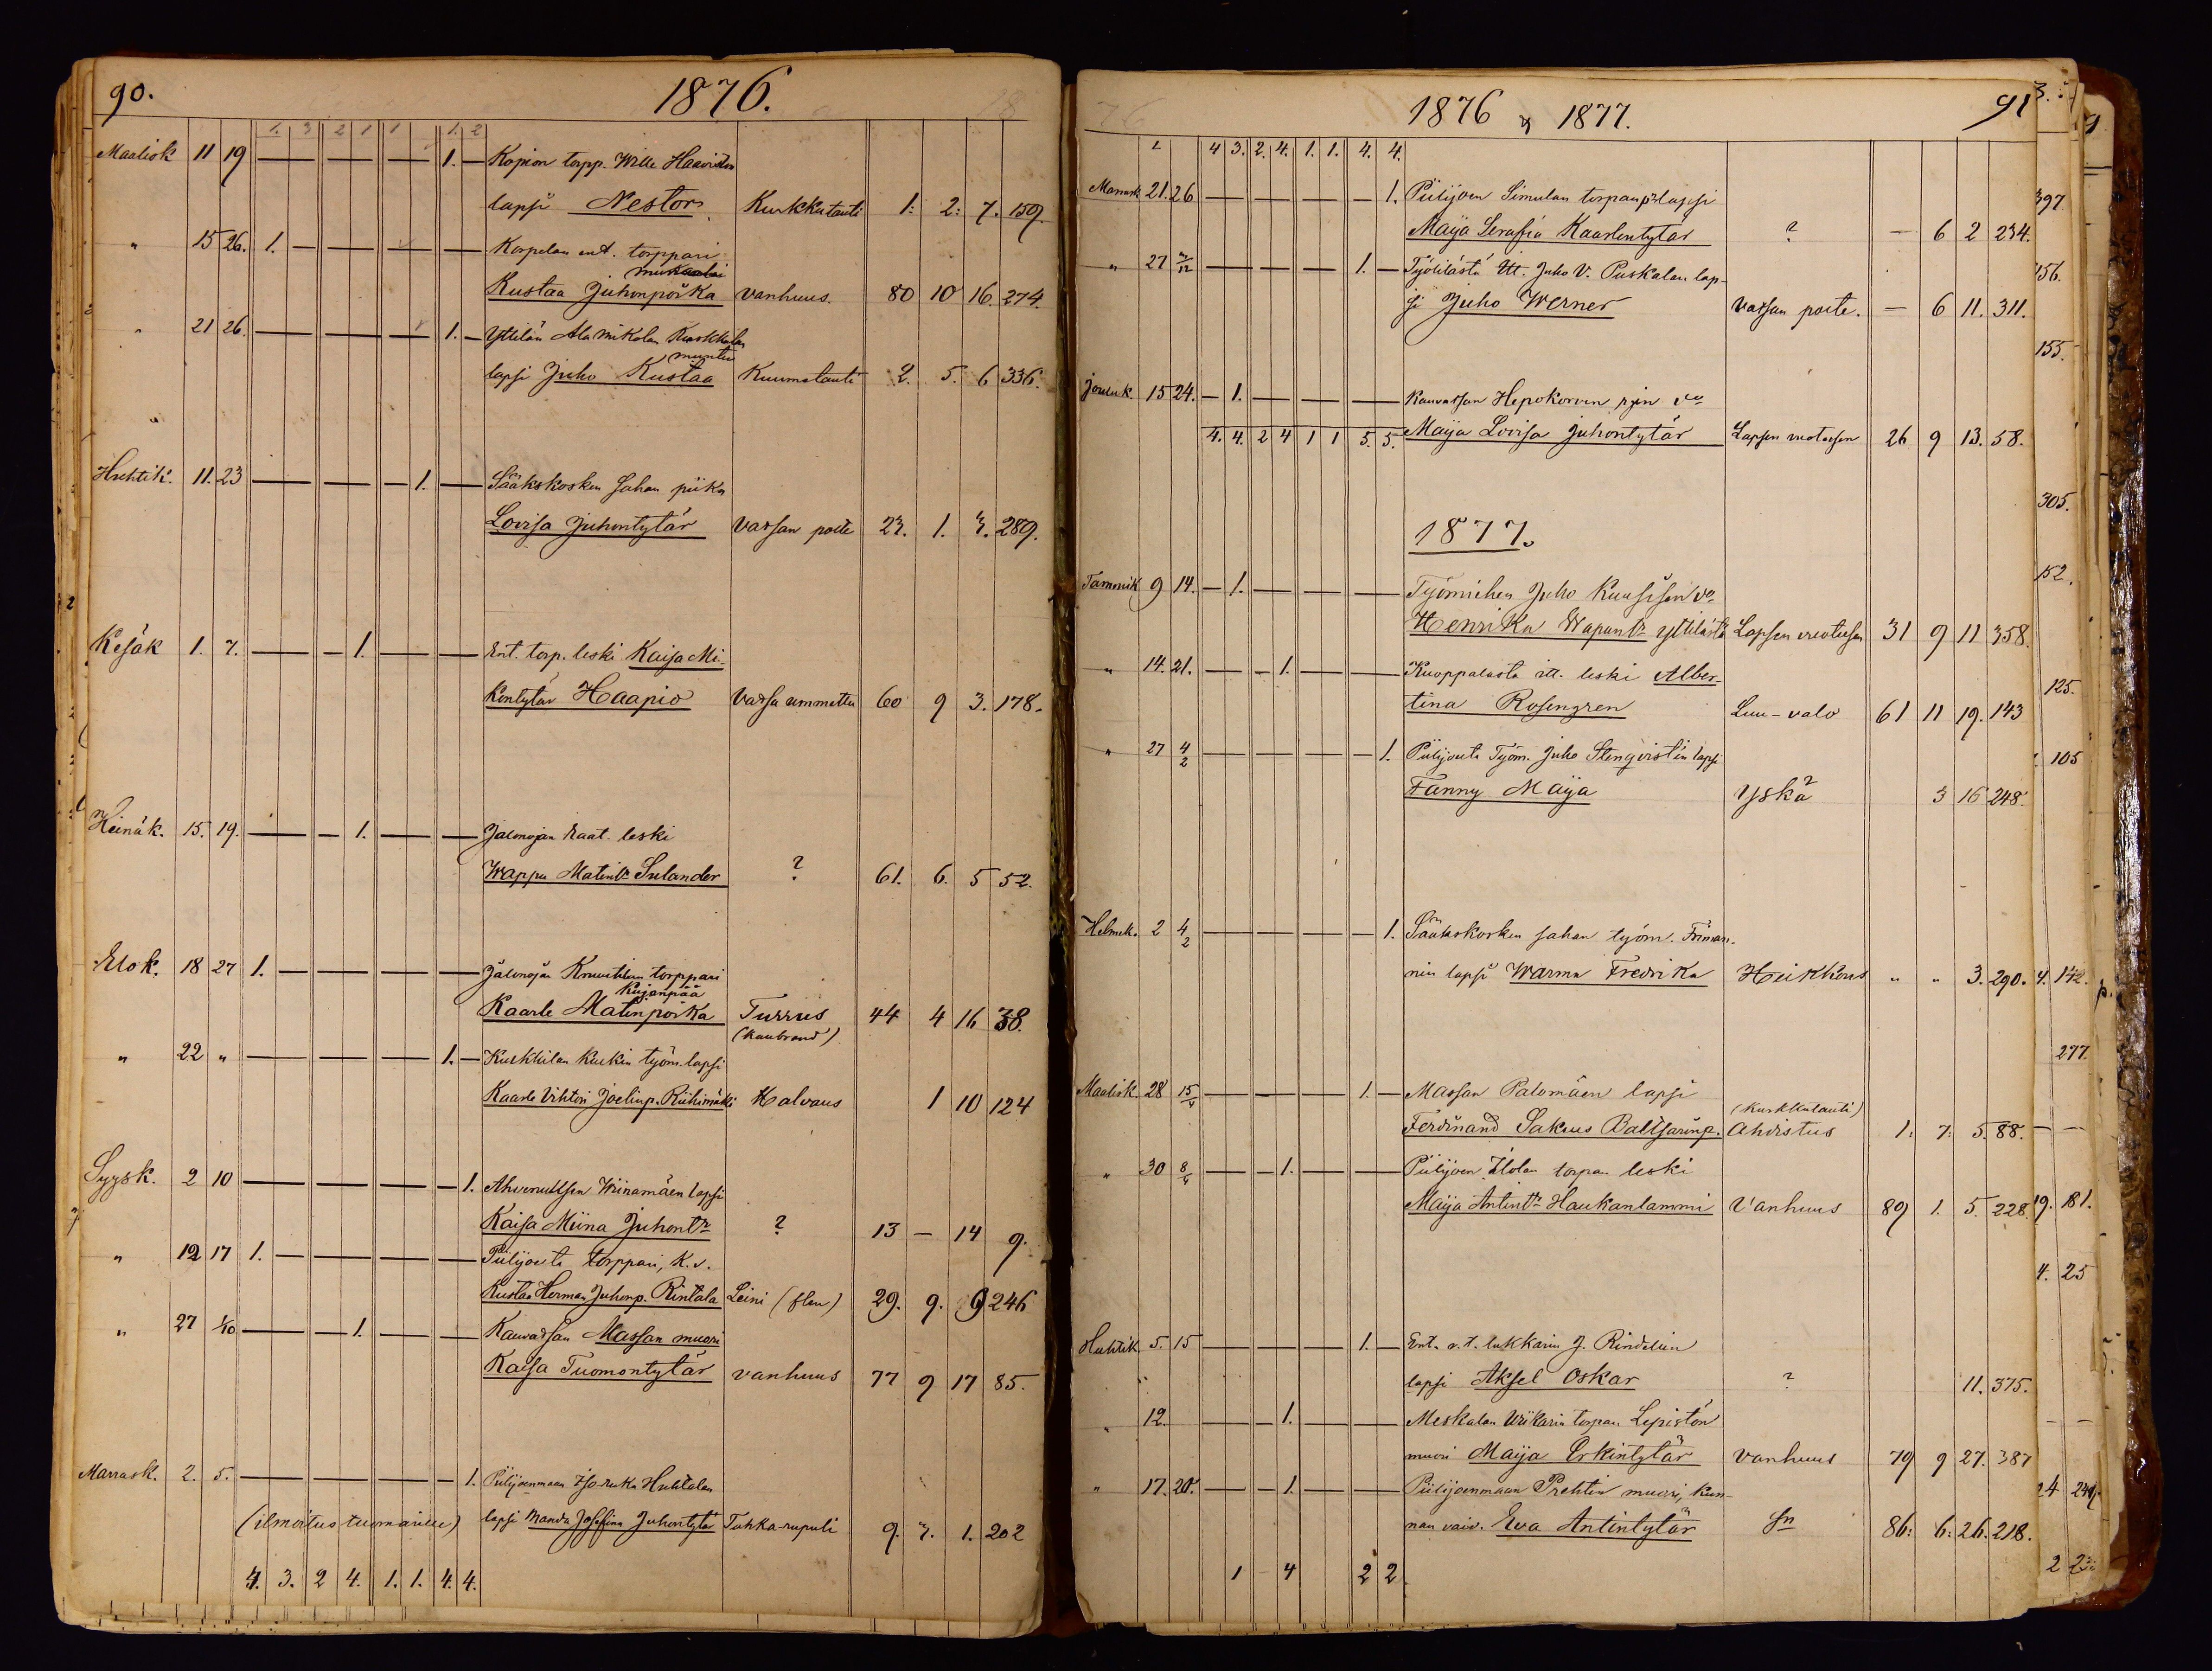 90.
1876.
1. 3 2 1 1 1. 2
Maalisk 11 19 — — — 1. — Kopion torpp. Wille Haaviston
lapsi Nestor Kurkkutauti 1: 2: 7. 159.
" 15 26. 1. — — — — Korpelan ent. torppari
Kustaa Juhonpoika vanhuus. 80 10 16. 274.
" 21 26. — — — 1. — Yttilän Ala Mikolan Kuskkalan
lapsi Juho Kustaa Kuumetauti 2. 5. 6 336.
Huhtik. 11. 23 — — — 1. — Sääkskosken Sahan piika
Lovisa Juhontytär Vatsan polte 23. 1. 3. 289.
Kesäk 1. 7. — — 1. — — Ent. torp. leski Kaisa Mi-
kontytär Haapio Vatsa ummettu 60 9 3. 178.
Heinäk. 15. 19. — — 1. — — Jalonojan leski
Wappu Matintr Sulander ? 61. 6. 5 52.
Elok. 18 27 1. — — — — Jalonojan torppari
Kujanpää
Kaarle Matinpoika Turrus 44 4 16 38.
(kaubrand)
" 22 " — — — 1. — Kurkkilan Kurkin työm. lapsi
Kaarle Vihtori Joelinp. Riihimäki Halvaus 1 10 124
Syysk. 2 10 — — — — 1. Ahvenuksen Wiinamäen lapsi
Kaisa Miina Juhontr ? 13 — 14 9.
" 12 17 1. — — — — Piilijoelta torppari, K. v.
Kustaa Herman Juhonp. Rintala Leini (flen) 29. 9. 9 246
" 27 1/10 — — 1. — — Kauvatsan Massan muori
Kaisa Tuomontytär vanhuus 77 9 17 85.
Marrask. 2. 5. — — — — 1. Piilijoenmaan Huhtalan
(ilmoitus tuomarille) lapsi Manda Josefiina Juhontytär Tuhka-rupuli 9. 7. 1. 202
4. 3. 2 4. 1. 1. 4. 4.
1876 & 1877.
91
4 3. 2. 4. 1. 1. 4. 4.
Marrask 21. 26 — — — — 1. Piilijoen Simulan torpanpr lapsi
Maija Serafia Kaarlentytär ? — 6 2 234.
" 27 3/12 — — — 1. — Työtilästä Itt. Juho V. Puskalan lap-
si Juho Werner vatsan polte. — 6 11. 311.
Jouluk. 15 24. — 1. — — — Kauvatsan Hepokorven rjin vo
4. 4. 2 4 1 1 5. 5. Maija Lovisa Juhontytär Lapsen vuoteesen 26 9 13. 58.
1877.
Tammik 9 14. — 1. — — — Työmiehen Juho Kuusisen vo
Henrika Wapuntr yttilästä Lapsen vuoteesen 31 9 11 358.
" 14. 21. — — 1. — — Kuoppalasta itt. leski Alber-
tina Rosengren Luu-valo 61 11 19. 143
" 27 4/2 — — — — 1. Piilijoelta Työm. Juho Stenqvistin lapsi
Fanny Maija Yskä? 3 16 248.
Helmik. 2 4/2 — — — — 1. Sääkskosken sahan työm. Friman-
nin lapsi Warma Fredrika Heikkous " " 3. 290.
Maalisk. 28 15/4 — — — 1. — Massan Palomäen lapsi
(Kurkkutauti)
Ferdinand Sakeus Baltsarinp. Ahdistus 1: 7: 5. 88.
" 30 8/4 — — 1. — — Piilijoen Ilolan torpan leski
Maija Antintr Haukanlammi Vanhuus 89 1. 5. 228.
Huhtik 5. 15 — — — 1. — Ent. v. t. lukkarin J. Rindelin
lapsi Aksel Oskar ? 11. 375.
" 12. — — 1. — — Meskalan torpan Lepistön
muori Maija Erkintytär vanhuus 79 9 27. 387
" 17. 20. — — 1. — — Piilijoenmaan Prehtin muori, kun-
nan vaiv. Eva Antintytär Sn 86: 6: 26. 218.
1 4 2 2
397
156.
155.
305.
152.
125.
105
4. 142.
277.
19. 181.
4. 25